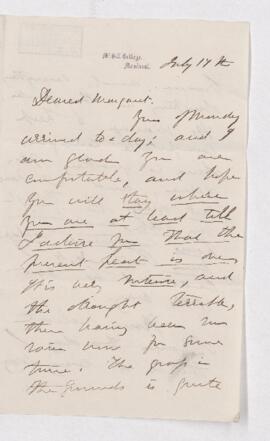 McGill College,
Montreal.
July 17th
Dearest Margaret.
Yours of Monday
arrived to-day; and I
am glad you are
comfortable, and hope
you will stay where
you are at least till
I advise you that the
present heat is over
It is very intense, and
the drought terrible,
there having been no
rain now for some
time. The grass in
the grounds is quite